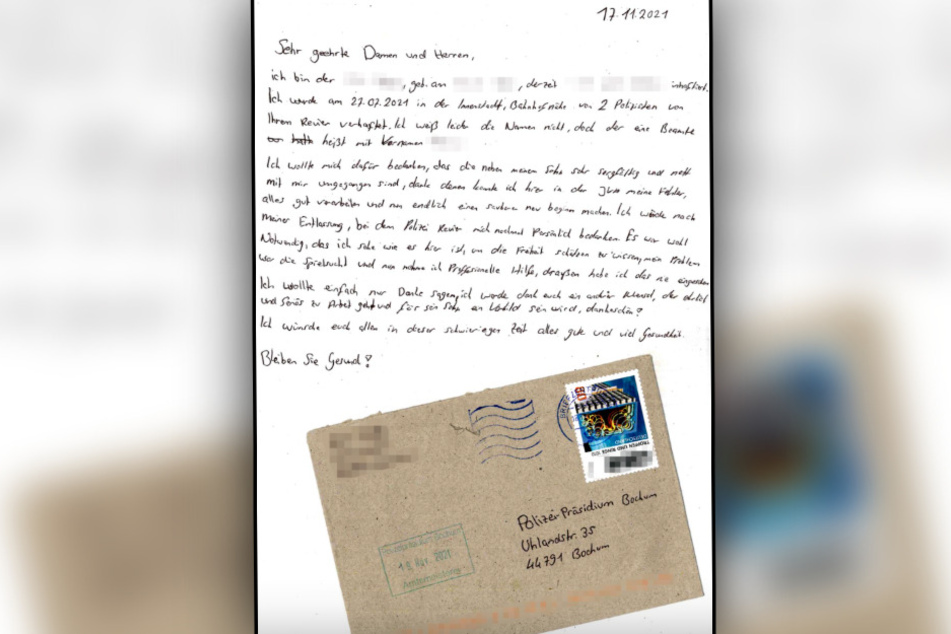 17.11.2021
Sehr geehrte Damen und Herren,
ich bin der , geb. am , derzeit inhaftiert.
Ich wurde am 27.07.2021 in der Innenstadt, Bahnhofsnähe von 2 Polizisten von
Ihrem Revier verhaftet. Ich weiß leider die Namen nicht, doch der eine Beamte
heißt mit Vornamen
Ich wollte mich dafür bedanken, das die neben meinem Sohn sehr sorgfältig und nett
mit mir umgegangen sind, danke denen konnte ich hier in der meine Fehler,
alles gut verarbeiten und nun endlich einen neu beginn machen. Ich werde nach
meiner Entlassung, bei dem Polizei Revier mich nochmal Persönlich bedanken. Es war wohl
Notwendig, das ich sehe wie es hier ist, um die Freiheit schätzen zu wissen, mein Problem
war die Spielsucht und nun nehme ich Proffesionelle Hilfe, draußen hätte ich das nie eingesehen
Ich wollte einfach nur Danke sagen, ich werde dank euch ein andrer Mensch, der ehrlich
und Seriös zu Arbeit geht und für sein Sohn ein Vorbild sein wird, dankeschön!
Ich wünsche euch allen in dieser schwierigen Zeit alles gute und viel Gesundheit.
Bleiben Sie Gesund!
DEUTSCHLAND
TROMMEN UND RUNGE
Polizei Präsidium Bochum
Uhlandstr. 35
44791 Bochum
2021